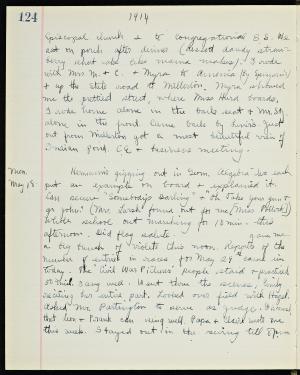 124
1914
Episcopal church & to Congregational S.S. We
sat on porch after dinner (dessert dandy straw-
berry short cake like mama makes). I rode
with Mrs M. & C. & Myra to Amenia (by Germain)
& up the state road to Millerton. Myra showed
me the prettiest street, where Miss Hurd boards,
I rode home alone in the back seat & Mr St
alone in the front. Came back by Irving's Just
out from Millerton got a most beautiful view of
Indian Pond. C.E. & business meeting.
Mon.
May 18.
Hermann's gipping out in Geom. Algebra we each
put an example on board & explained it.
Can secure "Somebody's Darling" & "Oh Take your gun &
go John" (Mrs. found out for me, Miss
school cut marching for 15 min. this
afternoon. Did flag salute gave me
a big bunch of violets this noon. Reports of the
number of entries in races for May 29 came in
today. The "Civil War Pictures" people staid & practiced
so until very well. Went thro the scenes, Emily
reciting her entire part. Looked over field with Hazel.
Asked Mr. Partington to serve as judge. Howard,
that Leon & Frank can very well. Papa & wrote me
this week. Stayed out in the swing till